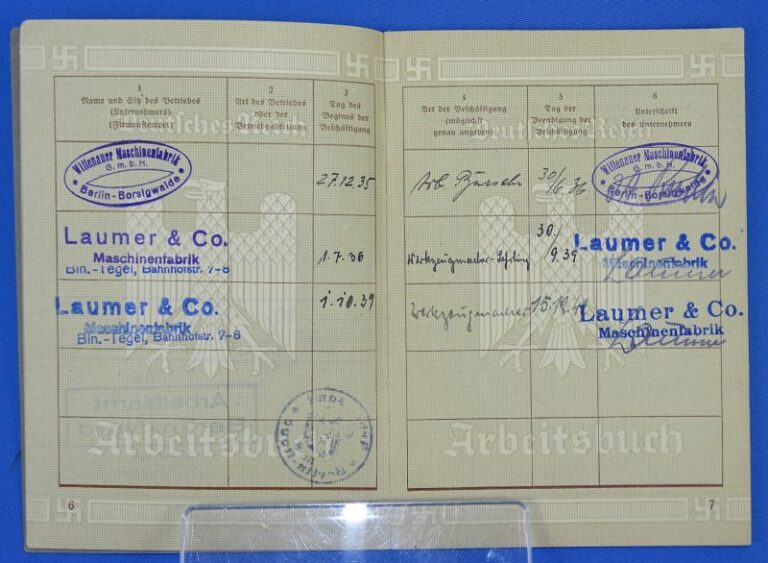 1
Name und Sitz des Betriebes
(Unternehmers)
(Firmenstempel)
2
Art des Betriebes
oder der
Betriebsabteilung
3
Tag des
Beginns der
Beschäftigung
Deutsches Reich
Wittenauer Maschinenfabrik
G. m. b. H.
Berlin-Borsigwalde
27.12.35
Laumer & Co.
Maschinenfabrik
Bln.-Tegel, Bahnhofstr. 7-8
1.7.36
Laumer & Co.
Maschinenfabrik
Bln.-Tegel, Bahnhofstr. 7-8
1.10.39
Arbeitsamt
Arbeitsbuch
6
4
Art der Beschäftigung
(möglichst
genau angeben)
5
Tag der
Beendigung der
Beschäftigung
6
Unterschrift
des Unternehmers
Deutsches Reich
Arb. Bursche
30/6 36
Wittenauer Maschinenfabrik
G. m. b. H.
Berlin-Borsigwalde
Werkzeugmacher-Lehrling
30./9.39
Laumer & Co.
Maschinenfabrik
Laumer
Werkzeugmacher
15.12.
Laumer & Co.
Maschinenfabrik
Laumer
Arbeitsbuch
7